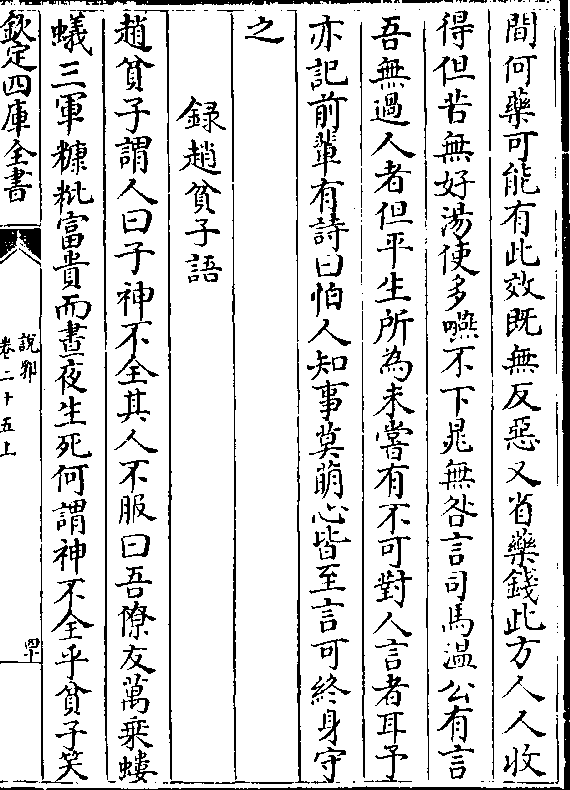 間何藥可能有此效既無反惡又省藥錢此方人人收
得但苦無好湯使多嚥不下晁無咎言司馬溫公有言
吾無過人者但平生所為未嘗有不可對人言者耳予
亦記前輩有詩曰怕人知事莫萌心皆至言可終身守
之
録趙貧子語
趙貧子謂人曰子神不全其人不服曰吾僚友萬乗螻
蟻三軍糠粃富貴而晝夜生死何謂神不全乎貧子笑
欽定四庫全書
說郛
卷二十五上
四十